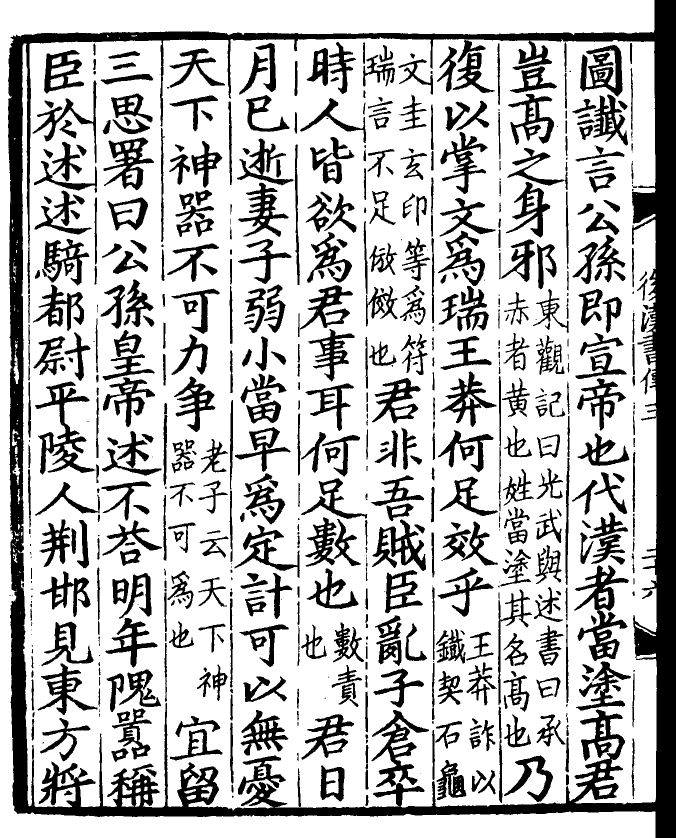 圖讖言公孫即宣帝也代漢者當塗髙君
豈髙之身邪東觀記曰光武與述書曰承赤者黄也姓當塗其名髙也乃
復以掌文爲瑞王莽何足效乎王莽詐以鐵契石龜
文圭玄印等爲符瑞言不足倣傚也君非吾賊臣亂子倉卒
時人皆欲爲君事耳何足數也數責也君日
月已逝妻子弱小當早爲定計可以無憂
天下神器不可力争老子云天下神器不可爲也宜留
三思署曰公孫皇帝述不荅明年隗嚻稱
臣於述述騎都尉平陵人荆邯見東方將